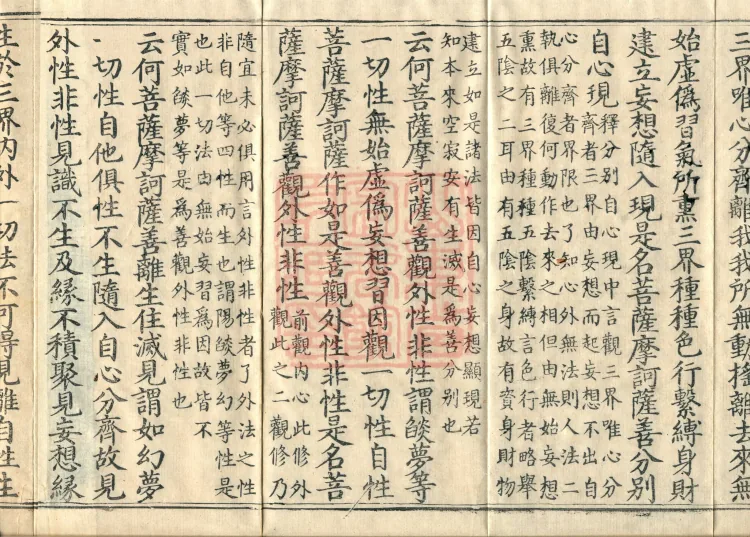 三界唯心分齊離我我所無動搖離去來無
始虛僞習氣所熏三界種種色行繫縛身財
建立妄想隨入現是名菩薩摩訶薩善分別
自心現釋分別自心現中言觀三界唯心分
齊者三界由妄想而起妄想不出自
心分齊者界限也了知心外無法則人法二
執俱離復何動作去來之相但由無始妄想
熏故有三界種種五陰繫縛言色行者略舉
五陰之二耳由有五陰之身故有資身財物
建立如是諸法皆因自心妄想顯現若
知本來空寂安有生滅是為善分別也
云何菩薩摩訶薩善觀外性非性謂燄夢等
一切性無始虛僞妄想習因觀一切性自性
菩薩摩訶薩作如是善觀外性非性是名菩
薩摩訶薩善觀外性非性前觀內心此修外
觀此之二觀修乃
隨宜未必俱用言外性非性者了外法之性
非自他等四性而生也謂陽燄夢幻等性是
也此一切法由無始妄習為因故皆不
實如燄夢等是為善觀外性非性也
云何菩薩摩訶薩善離生住滅見謂如幻夢
一切性自他俱性不生隨入自心分齊故見
外性非性見識不生及緣不積聚見妄想緣
生於三界內外一切法不可得見離自性生